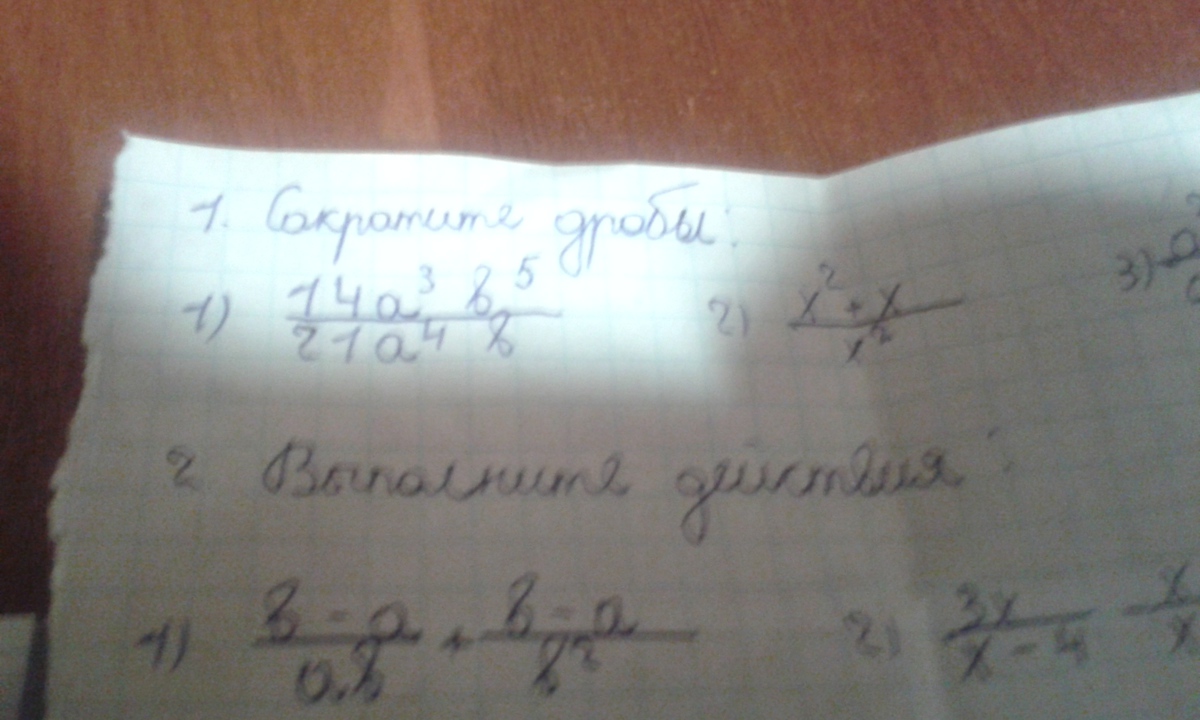 1. Сократите дробы:
1) 14a³ b⁵ / 21a⁴ b 2) x² + x / x² 3)
2 Выполните действия:
1) b - a / ab + b - a / b² 2) 3x / x - 4 - x / x